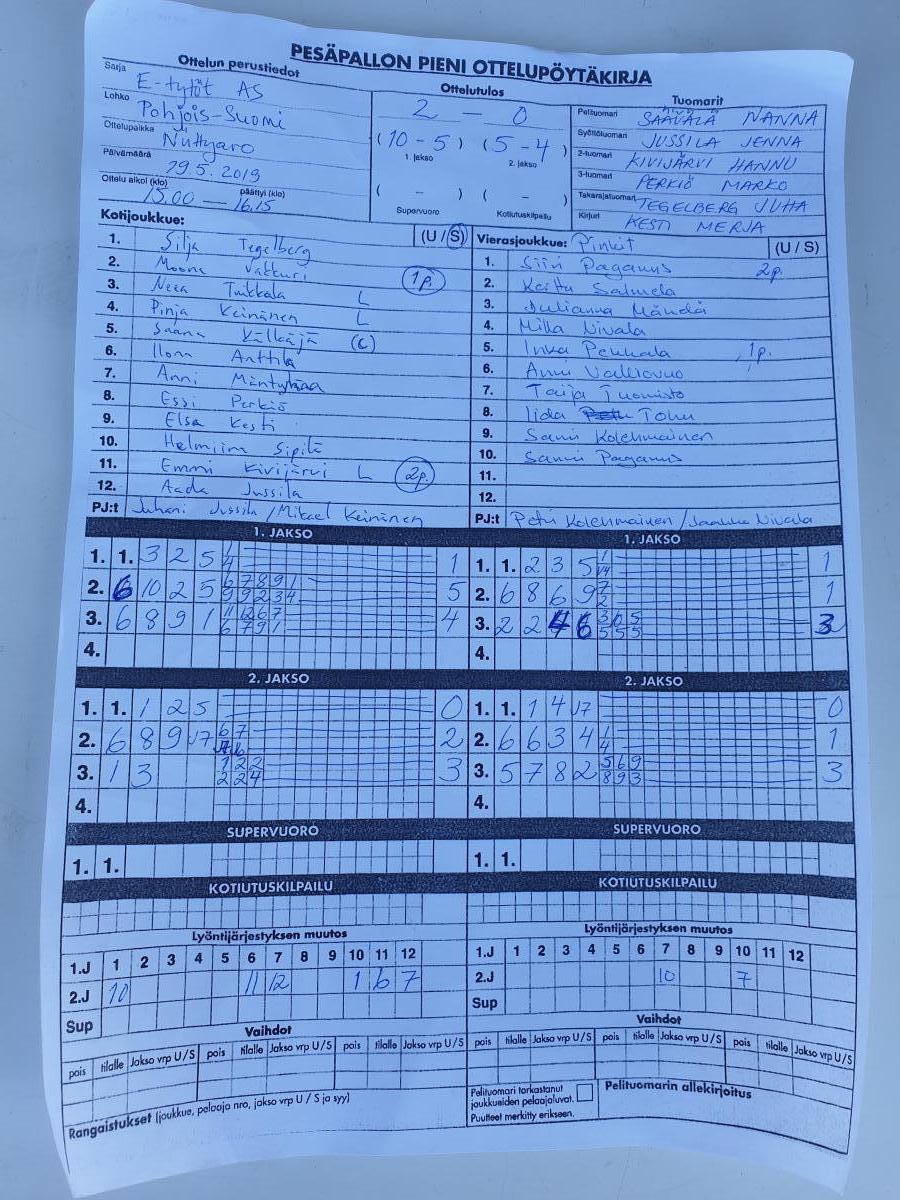 PESÄPALLON PIENI OTTELUPÖYTÄKIRJA
Ottelun perustiedot
Sarja E-tytöt AS
Lohko Pohjois-Suomi
Ottelupaikka Nuttyaro
Päivämäärä 29.5.2019
Ottelu alkoi (klo) päättyi (klo)
15.00 — 16.15
Ottelutulos
2 — 0
(10 - 5) (5 - 4)
1. jakso 2. jakso
( - ) ( - )
Supervuoro Kotiutuskilpailu
Tuomarit
Pelituomari SÄÄVÄLÄ NANNA
Syöttötuomari JUSSILA JENNA
2-tuomari KIVIJÄRVI HANNU
3-tuomari PERKIÖ MARKO
Takarajatuomari TEGELBERG JUHA
Kirjuri KESTI MERJA
Kotijoukkue: (U / S)
1. Silja Tegelberg
2. Moona Vatturi 1p.
3. Neea Tukkala L
4. Pinja Keinänen L
5. Saana Kälkäjä (C)
6. Ilona Anttila
7. Anni Mäntymaa
8. Essi Perkiö
9. Elsa Kesti
10. Helmiina Sipilä
11. Emmi Kivijärvi L 2p.
12. Aada Jussila
PJ:t Juhani Jussila / Mikael Keinänen
Vierasjoukkue: Pinkit (U / S)
1. Siiri Paganus 2p.
2. Kerttu Salmela
3. Julianna Mändä
4. Milla Nivala
5. Inka Pekkala 1p.
6. Anni Valliovuo
7. Taija Tuomisto
8. Iida Tohu
9. Sanni Kolehmainen
10. Sanni Paganus
11.
12.
PJ:t Petri Kolehmainen / Jaakko Nivala
1. JAKSO
1. 1. 3 2 5 1
2. 6 10 2 5 6 7 8 9 1 5
9 9 2 3 4
3. 6 8 9 1 11 12 6 7 4
6 7 9 1
4.
1. JAKSO
1. 1. 2 3 5 1
2. 6 8 6 9 7 1
2
3. 2 2 6 3 10 5 3
5 5 5
4.
2. JAKSO
1. 1. 1 2 5 0
2. 6 8 9 J7 6 7 2
3. 1 3 1 2 2 3
2 2 4
4.
2. JAKSO
1. 1. 1 4 J7 0
2. 6 6 3 4 1 1
4
3. 5 7 8 2 5 6 9 3
8 9 3
4.
SUPERVUORO
1. 1.
SUPERVUORO
1. 1.
KOTIUTUSKILPAILU
KOTIUTUSKILPAILU
Lyöntijärjestyksen muutos
1.J 1 2 3 4 5 6 7 8 9 10 11 12
2.J 10 11 12 1 6 7
Sup
Lyöntijärjestyksen muutos
1.J 1 2 3 4 5 6 7 8 9 10 11 12
2.J 10 7
Sup
Vaihdot
pois tilalle Jakso vrp U / S pois tilalle Jakso vrp U / S pois tilalle Jakso vrp U / S
Vaihdot
pois tilalle Jakso vrp U / S pois tilalle Jakso vrp U / S pois tilalle Jakso vrp U / S
Rangaistukset (joukkue, pelaaja nro, jakso vrp U / S ja syy)
Pelituomari tarkastanut
joukkueiden pelaajaluvat.
Puutteet merkitty erikseen.
Pelituomarin allekirjoitus